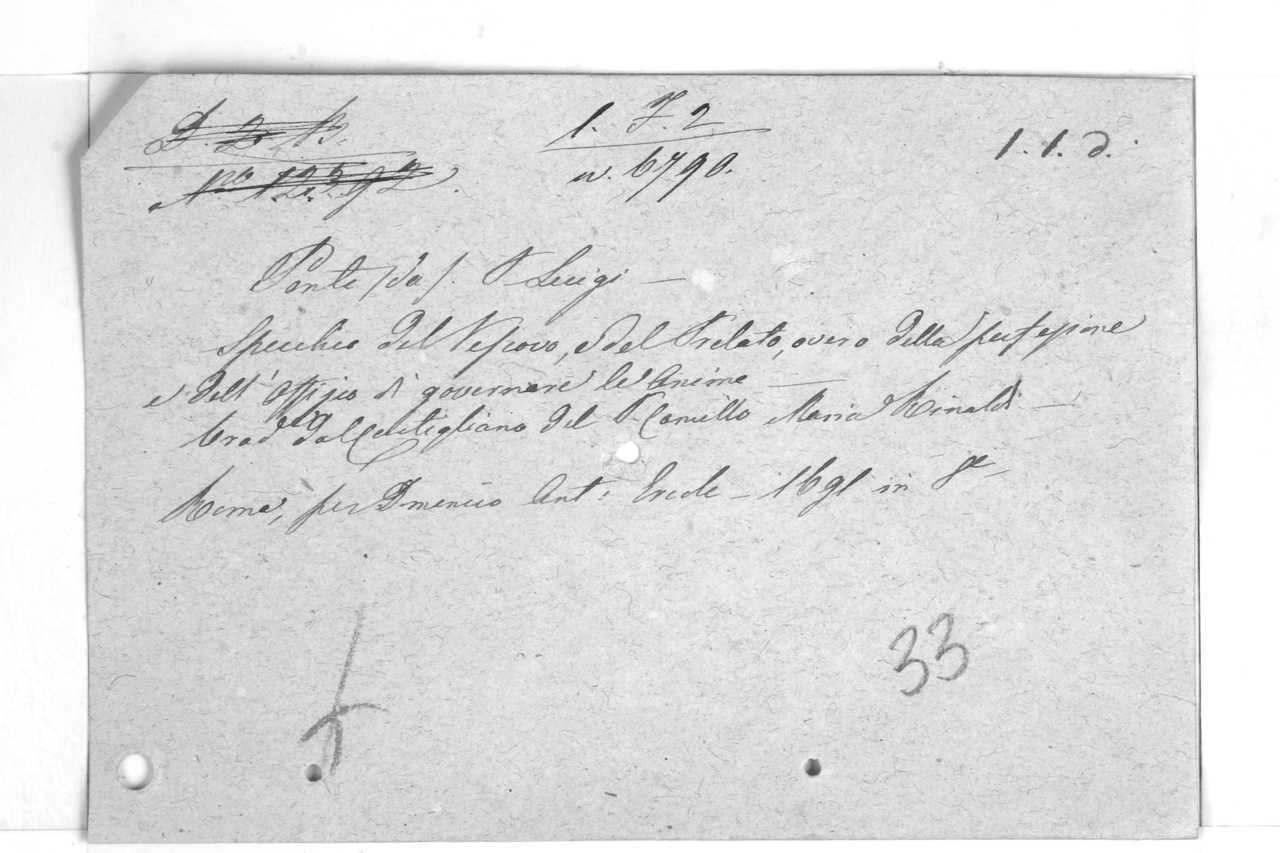 D. 3. B. l. F. 2 1. 1. d.
No 12. 292. n. 6790.
Ponte /da/. P. Luigi —
Specchio del Vescovo, e del Prelato, overo della perfezione
e dell' Offizio di governare le Anime —
trad. dal Castigliano del P. Camillo Maria Rinaldi —
Roma, per Domenico Ant: Ercole — 1691 in 8°
33